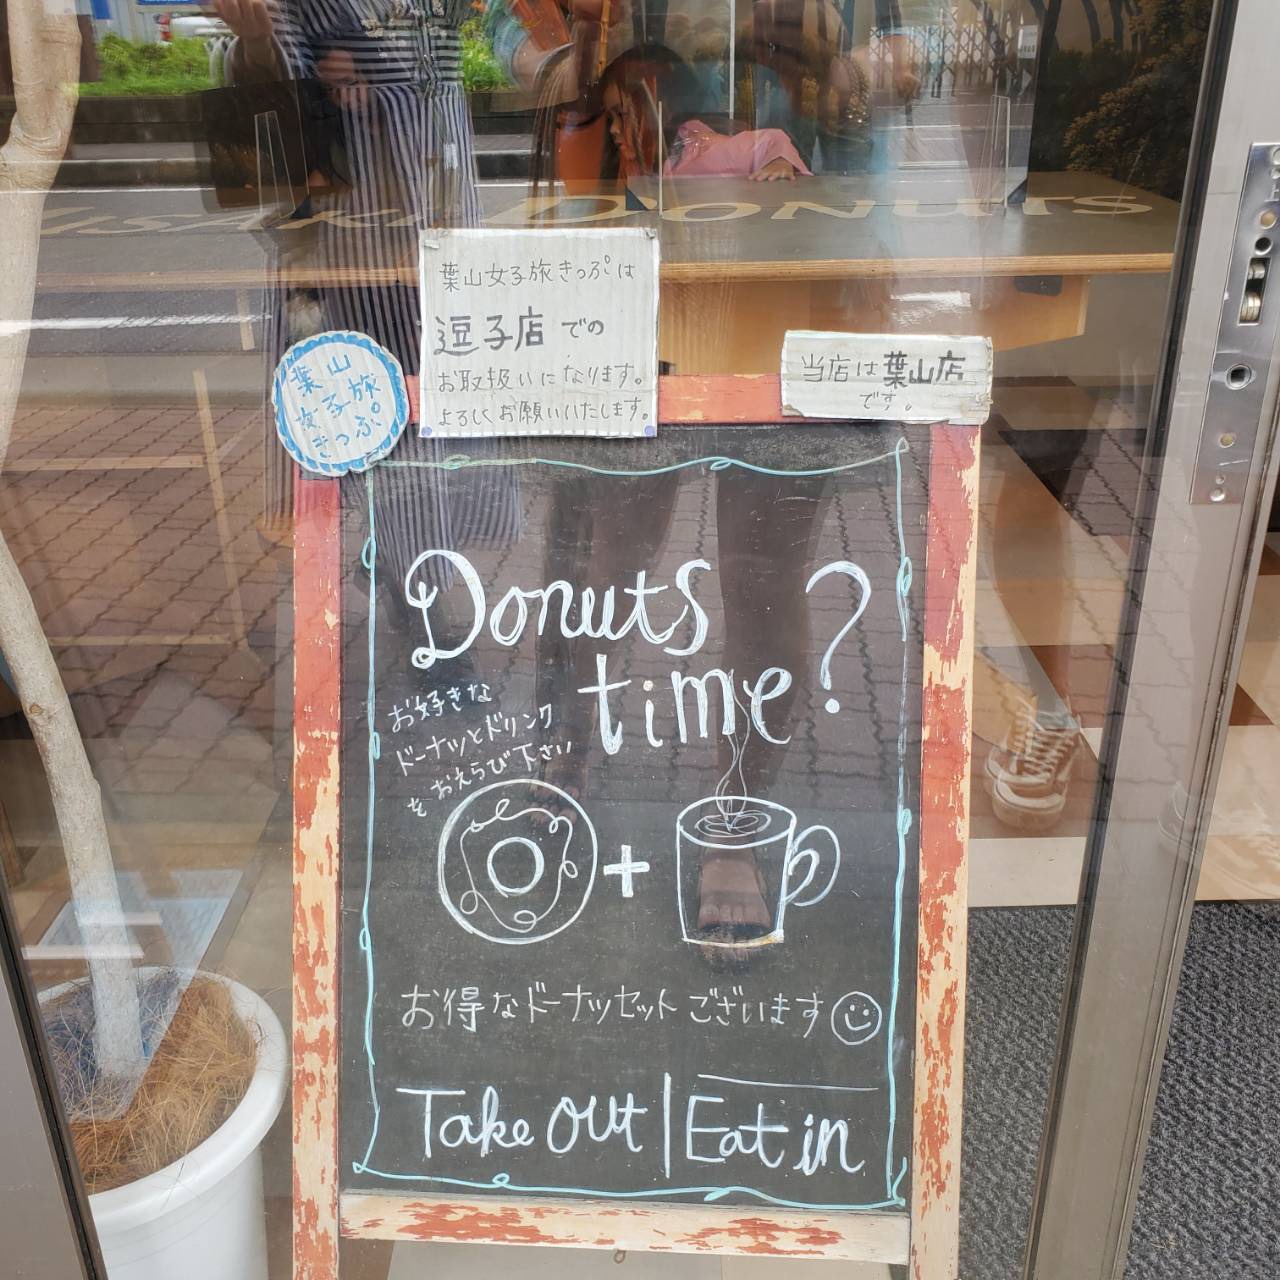 DONUTS
葉山女子旅きっぷは
逗子店での
お取扱いになります。
よろしくお願いいたします。
葉山
女子旅
きっぷ。
当店は葉山店
です。
Donuts
time?
お好きな
ドーナツとドリンク
をおえらび下さい
+
お得なドーナツセットございます
Take out | Eat in